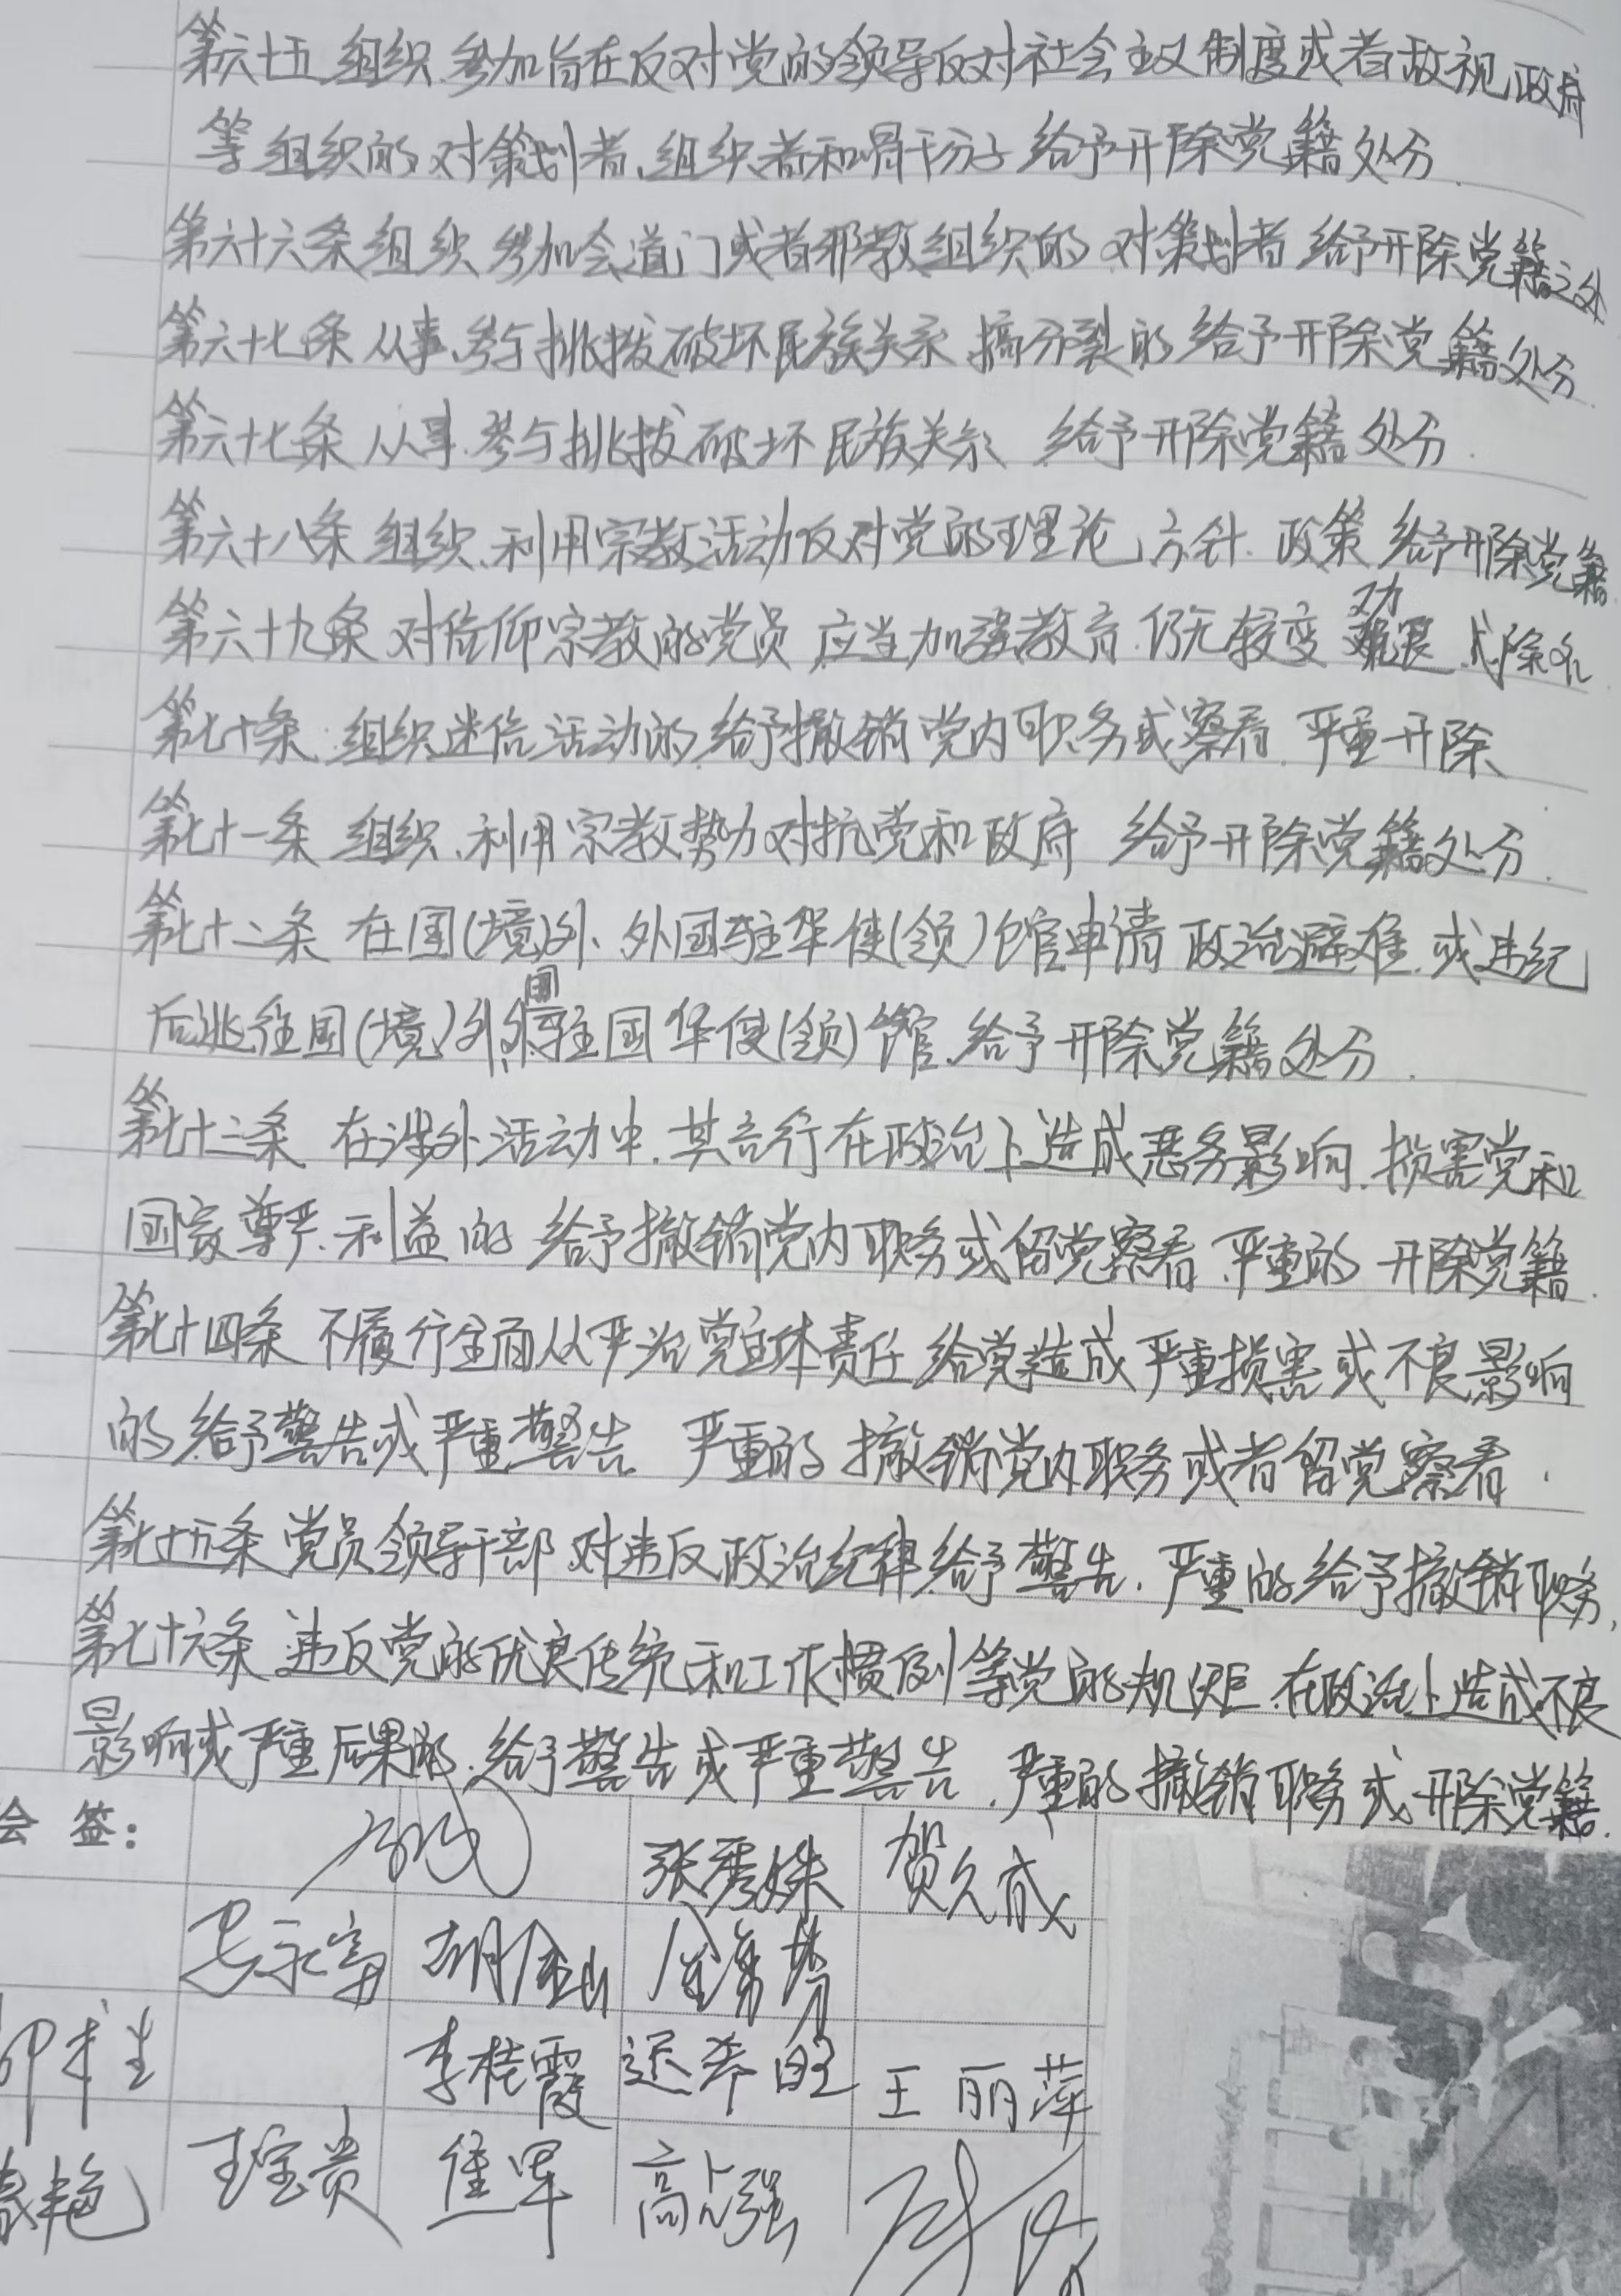 第六十五 组织、参加旨在反对党的领导反对社会主义制度或者敌视政府
等组织的 对策划者、组织者和骨干分子 给予开除党籍处分.
第六十六条 组织 参加会道门或者邪教组织的 对策划者 给予开除党籍之处
第六十七条 从事、参与挑拨破坏民族关系 搞分裂的 给予开除党籍处分.
第六十七条 从事、参与挑拨破坏民族关系 给予开除党籍处分.
第六十八条 组织、利用宗教活动反对党的理论、方针、政策 给予开除党籍
第六十九条 对信仰宗教的党员 应当加强教育.仍无转变 劝退 或除名
第七十条 组织迷信活动的 给予撤销党内职务或察看.严重开除
第七十一条 组织、利用宗教势力对抗党和政府 给予开除党籍处分.
第七十二条 在国(境)外、外国驻华使(领)馆申请政治避难.或违纪
后逃往国(境)外、外国驻国华使(领)馆.给予开除党籍处分.
第七十三条 在涉外活动中.其言行在政治上造成恶劣影响.损害党和
国家尊严、利益的 给予撤销党内职务或留党察看.严重的 开除党籍.
第七十四条 不履行全面从严治党主体责任 给党造成严重损害或不良影响
的 给予警告或严重警告 严重的 撤销党内职务或者留党察看.
第七十五条 党员领导干部 对违反政治纪律 给予警告.严重的给予撤销职务,
第七十六条 违反党的优良传统和工作惯例等党的规矩.在政治上造成不良
影响或严重后果的.给予警告或严重警告.严重的撤销职务或开除党籍.
会 签:
张秀姝 贺久成
胡金山
李桂霞 迟希旺 王丽萍
王宝贵 焦军 高占强